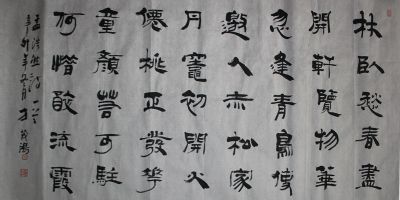 林臥愁春盡
開軒覽物華
忽逢青鳥使
邀入赤松家
丹竈初開火
僊桃正發花
童顏若可駐
何惜醉流霞
孟浩然詩一首
辛卯年 月